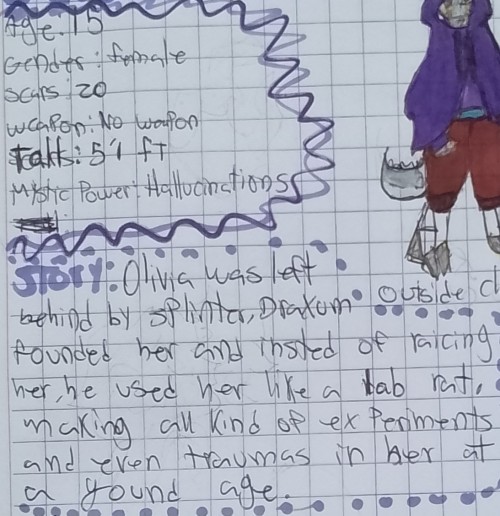 Age: 15
Gender: female
Scars: 20
weapon: No weapon
tall: 5'1 ft
Mystic Power: Hallucinations
STORY: Olivia was left
behind by Splinter, Draxum
outside cl
founded her and insted of raicing
her, he used her like a lab rat,
making all kind of experiments
and even traumas in her at
a yound age.